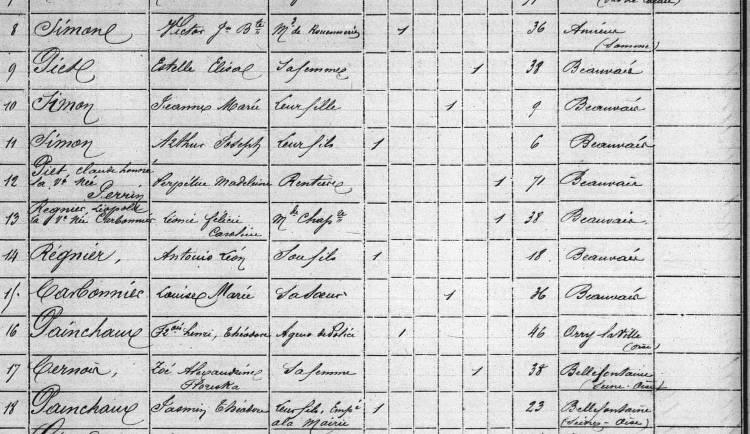 8 Simon Victor Jn Bte Md de Rouenneries 1 36 Amiens
(Somme)
9 Piet Estelle Elisa Sa femme 1 38 Beauvais
10 Simon Jeanne Marie Leur fille 1 9 Beauvais
11 Simon Arthur Joseph Leur fils 1 6 Beauvais
Piet, claude honoré
12 la Ve née Perpétue Madeleine Rentière 1 71 Beauvais
Perrin
Regnier, Léopold
13 la Ve née Carbonnier Félicie 1 38 Beauvais
Caroline
14 Régnier, Antonio Léon Son fils 1 18 Beauvais
15 Carbonnier Louise Marie Sa Soeur 1 36 Beauvais
16 Painchaux Fçois henri, Théodore Agent de Police 1 46 Orry la Ville
(Oise)
17 Cernoir, Zoé Alexandrine Sa femme 1 38 Bellefontaine
Floriska (Seine-Oise)
18 Painchaux Jasmin Théodore Leur fils, Empé 1 23 Bellefontaine
à la Mairie (Seine-Oise)